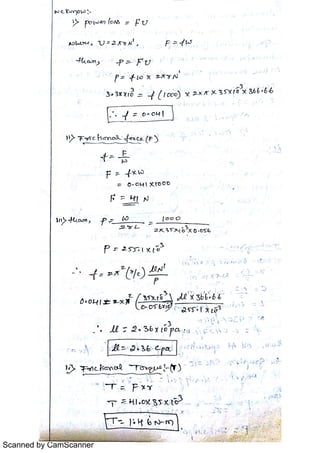 we know:
i) power loss = FU
where, U = 2πrN', F = fW
than, P = FU
P = fW × 2πrN'
3.3×10³ = f (1000) × 2×π × 35×10³ × 366.66
∴ f = 0.041
ii) Frictional force (F)
f = F/W
F = f×W
= 0.041×1000
F = 41 N
iii) than, P = W/2rL = 1000/2×35×10³×0.056
P = 255.1×10³
∴ f = 2π² (r/c) μN'/P
0.041 = 2×π² (35×10³/0.05×10³) μ × 366.66/255.1×10³
∴ μ = 2.36×10³ pa.s
μ = 2.36 cpa
iv) Frictional Torque:- (T)
T = F×r
T = 41.0×35×10³
T = 1.46 N-m
Scanned by CamScanner